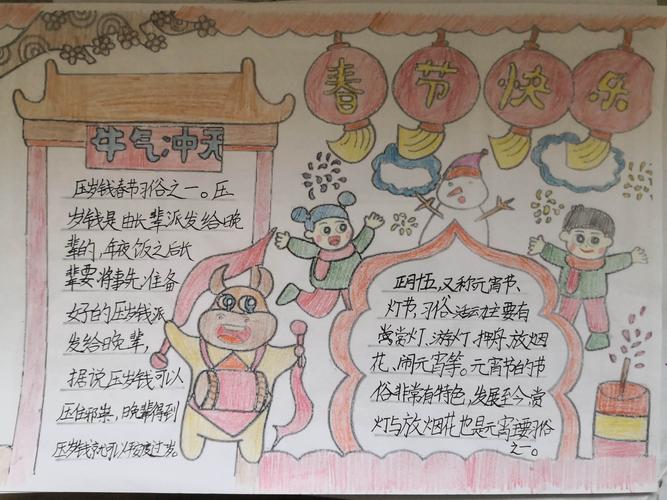 春节快乐
牛气冲天
压岁钱春节习俗之一。压
岁钱是由长辈派发给晚
辈的,年夜饭之后长
辈要将事先准备
好的压岁钱派
发给晚辈,
据说压岁钱可以
压住邪祟,晚辈得到
压岁钱就可以平安度过岁。
正月十五,又称元宵节、
灯节,习俗活动主要有
赏灯、游灯、押舟、放烟
花、闹元宵等。元宵节的节
俗非常有特色,发展至今,赏
灯与放烟花也是元宵主要习俗
之一。